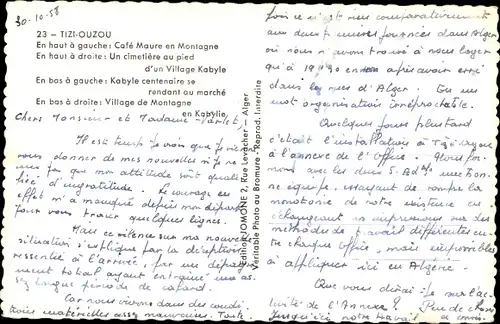 30-10-58
23 – TIZI-OUZOU
En haut à gauche : Café Maure en Montagne
En haut à droite : Un cimetière au pied
d'un Village Kabyle
En bas à gauche : Kabyle centenaire se
rendant au marché
En bas à droite : Village de Montagne
en Kabylie
Chers Monsieur et Madame
Il est temps je crois que je vienne
vous donner de mes nouvelles
pas que mon attitude soit quali-
fiée d'ingratitude. Le courage en
effet m'a manqué depuis mon départ
pour vous tracer quelques lignes.
Mais ce silence sur ma nouvelle
situation s'explique par la déception
ressentie à l'arrivée, par un dépayse-
ment total ayant entraîné une as-
sez longue période de cafard.
Car nous vivons dans des condi-
tions matérielles assez mauvaises. Toute-
Editions JOMONE 2, Rue Levacher - Alger
Véritable Photo au Bromure - Reprod. Interdite
fois ce n'est rien comparativement
aux deux premières journées dans Alger
où nous n'avons trouvé à nous loger
qu'à 19 30 après avoir erré
dans les rues d'Alger. En un
mot organisation irréprochable.
Quelques jours plus tard
c'était l'installation à Tizi-Ouzou
à l'annexe de l'Office. Nous for-
mons avec les deux une bon-
ne équipe, essayant de rompre la
monotonie de notre existence en
échangeant nos impressions sur des
méthodes de travail différentes en-
tre chaque Office, mais impossibles
à appliquer ici en Algérie.
Que vous dirai-je sur l'ac-
tivité de l'Annexe ? Peu de chose
Jusqu'ici notre travail a consis-